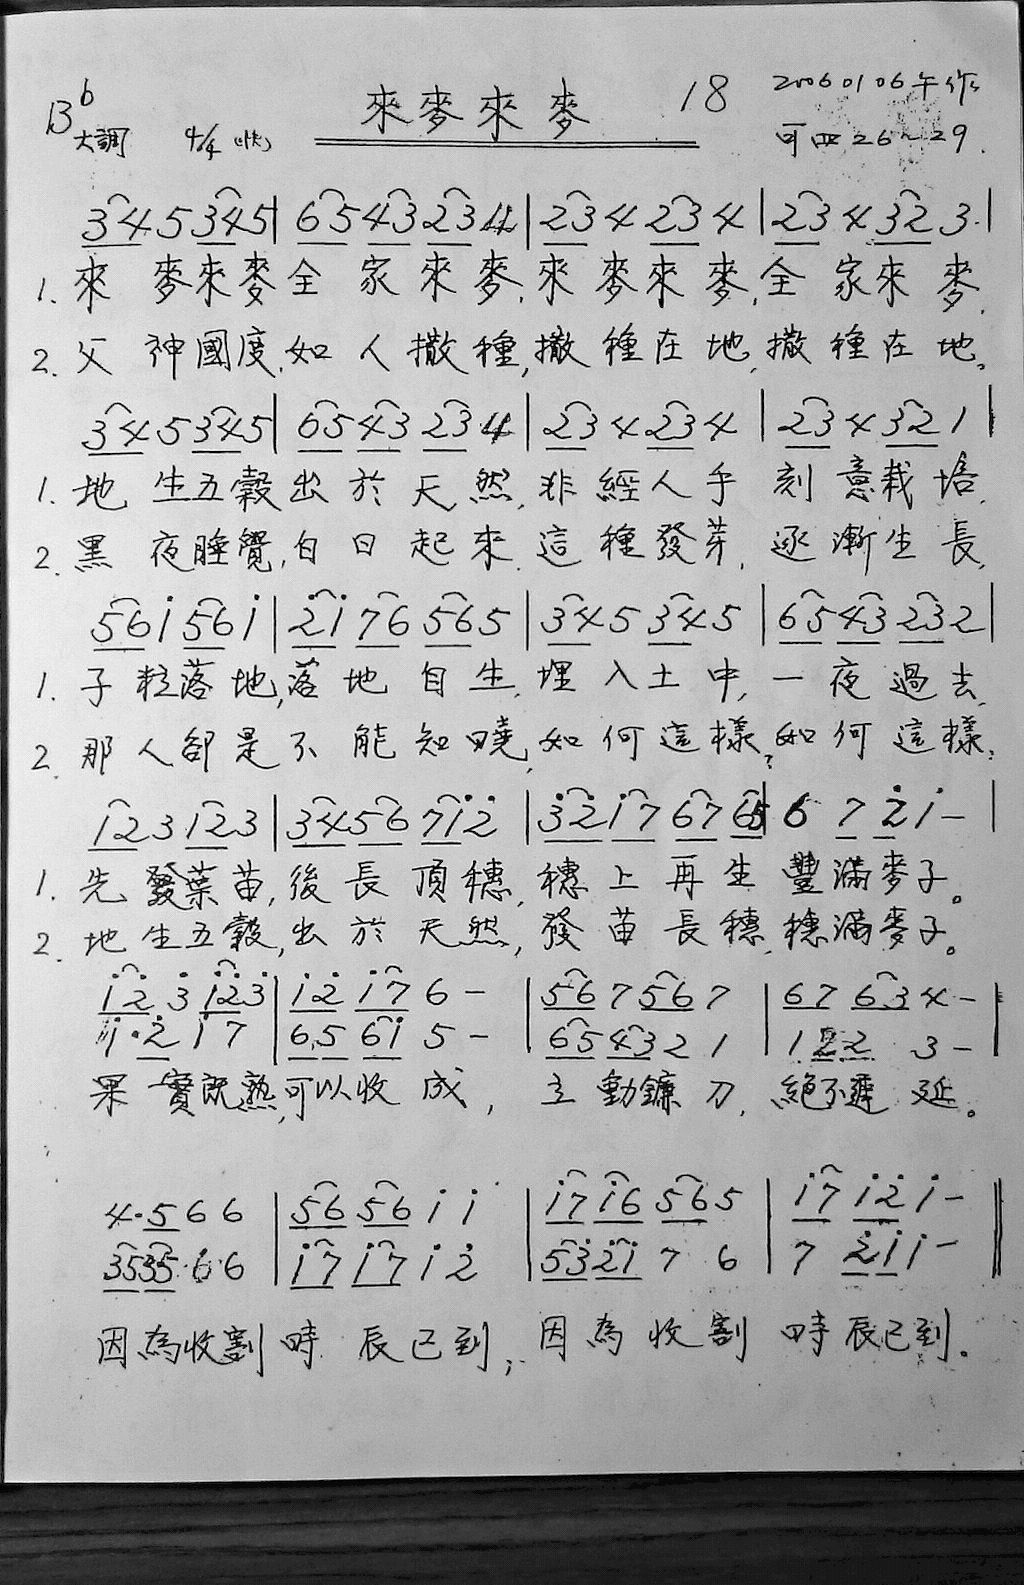 來麥來麥 18 20060106午作
B♭大調 4/4 (快) 可四26~29.
3 4 5 3 4 5 | 6 5 4 3 2 3 4 | 2 3 4 2 3 4 | 2 3 4 3 2 3. |
1. 來 麥來麥全 家 來 麥,來 麥來 麥,全 家來 麥,
2. 父 神國度,如 人 撒 種,撒 種在 地,撒 種 在 地。
3 4 5 3 4 5 | 6 5 4 3 2 3 4 | 2 3 4 2 3 4 | 2 3 4 3 2 1 |
1. 地 生五穀出 於 天 然,非 經人 手 刻 意栽 培,
2. 黑 夜睡覺,白 日 起 來,這 種發芽,逐 漸生 長,
5 6 i 5 6 i | 2̇ i 7 6 5 6 5 | 3 4 5 3 4 5 | 6 5 4 3 2 3 2 |
1. 子 粒落地,落 地 自 生,埋 入土 中,一 夜 過 去,
2. 那 人卻是不 能 知 曉,如 何這 樣?如 何 這 樣?
1 2 3 1 2 3 | 3 4 5 6 7 i 2̇ | 3̇ 2̇ i 7 6 7 6 5 | 6 7 2̇ i - |
1. 先 發葉苗,後 長 頂 穗,穗 上 再 生 豐滿麥子。
2. 地 生五穀,出 於 天 然,發 苗 長 穗,穗滿麥子。
i 2̇ 3̇ i 2̇ 3̇ | i 2̇ i 7 6 - | 5 6 7 5 6 7 | 6 7 6 3 4 - |
i · 2̇ i 7 | 6. 5 6 i 5 - | 6 5 4 3 2 1 | 1 2 2 3 - |
果 實既熟,可以收 成, 主 動鐮 刀,絕不遲 延。
4 · 5 6 6 | 5 6 5 6 i i | i 7 i 6 5 6 5 | i 7 i 2̇ i - ‖
3 5 3 5 · 6 · 6 | i 7 i 7 i 2̇ | 5 3̇ 2̇ i 7 6 | 7 2̇ i i - ‖
因為收割 時 辰已到; 因 為 收 割 時辰已到。